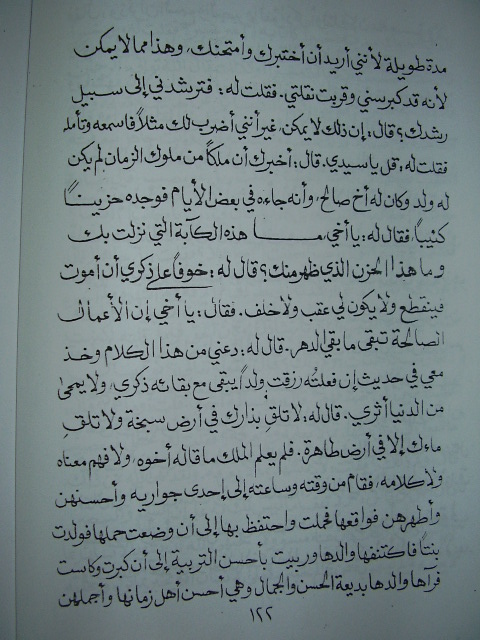 مدة طويلة لأنني أريد أن أختبرك وأمتحنك، وهذا مما لا يمكن
لأنه قد كبر سني وقربت نقلتي. فقلت له: فترشدني إلى سبيل
رشدك؟ قال: إن ذلك لا يمكن، غير أنني أضرب لك مثلاً فاسمعه وتأمله
فقلت له: قل يا سيدي. قال: أخبرك أن ملكاً من ملوك الزمان لم يكن
له ولد وكان له أخ صالح، وأنه جاءه في بعض الأيام فوجده حزيناً
كئيباً، فقال له: يا أخي، ما هذه الكآبة التي نزلت بك
وما هذا الحزن الذي ظهر منك؟ قال له: خوفاً على ذكري أن أموت
فينقطع ولا يكون لي عقب ولا خلف. فقال: يا أخي إن الأعمال
الصالحة تبقى ما بقي الدهر. قال له: دعني من هذا الكلام وخذ
معي في حديث إن فعلته رزقت ولداً يبقى مع بقائه ذكري، ولا يمحى
من الدنيا أثري. قال له: لا تلقِ بذارك في أرض سبخة ولا تلقِ
ماءك إلا في أرض طاهرة. فلم يعلم الملك ما قاله أخوه، ولا فهم معناه
ولا كلامه، فقام من وقته وساعته إلى إحدى جواريه وأحسنهن
وأطهرهن فواقعها فحملت واحتفظ بها إلى أن وضعت حملها فولدت
بنتاً فاكتنفها والدها وربيت بأحسن التربية إلى أن كبرت وكاست
فرآها والدها بديعة الحسن والجمال وهي أحسن أهل زمانها وأجملهن
١٢٢